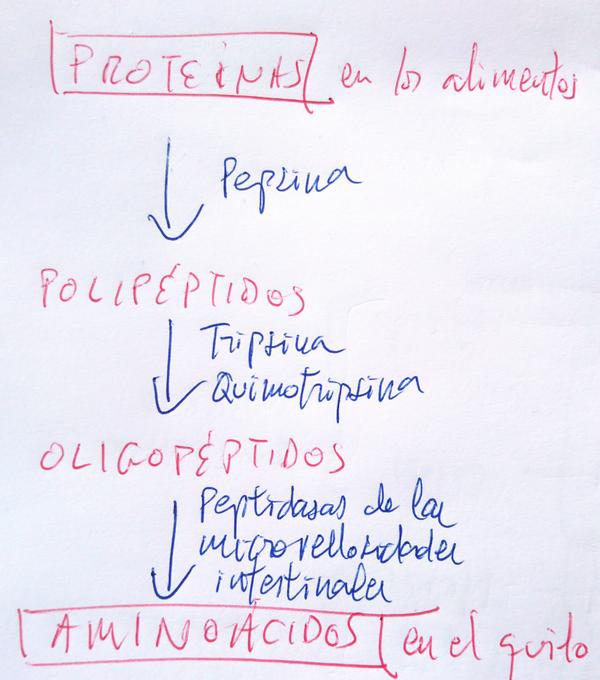 PROTEÍNAS en los alimentos
Pepsina
POLIPÉPTIDOS
Tripsina
Quimotripsina
OLIGOPÉPTIDOS
Peptidasas de las
microvellosidades
intestinales
AMINOÁCIDOS en el quilo